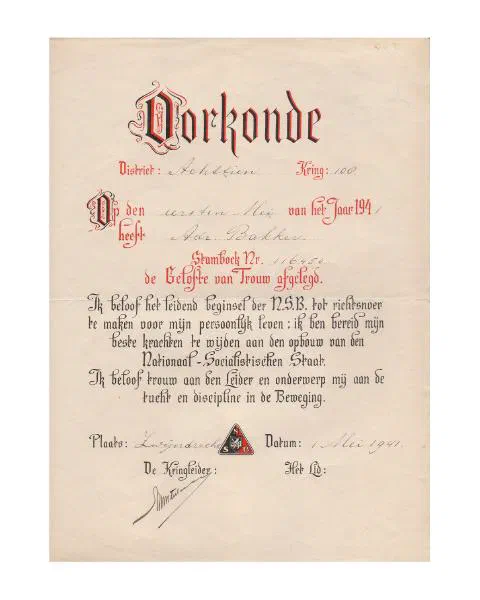 Oorkonde
District: Achttien Kring: 100
Op den eersten Mei van het Jaar 1941
heeft Adr. Bakker
Stamboek Nr. 11645
de Gelofte van Trouw afgelegd.
Ik beloof het leidend beginsel der N.S.B. tot richtsnoer
te maken voor mijn persoonlijk leven: ik ben bereid mijn
beste krachten te wijden aan den opbouw van den
Nationaal-Socialistischen Staat.
Ik beloof trouw aan den Leider en onderwerp mij aan de
tucht en discipline in de Beweging.
Plaats: Zwijndrecht Datum: 1 Mei 1941.
De Kringleider: Het Lid: